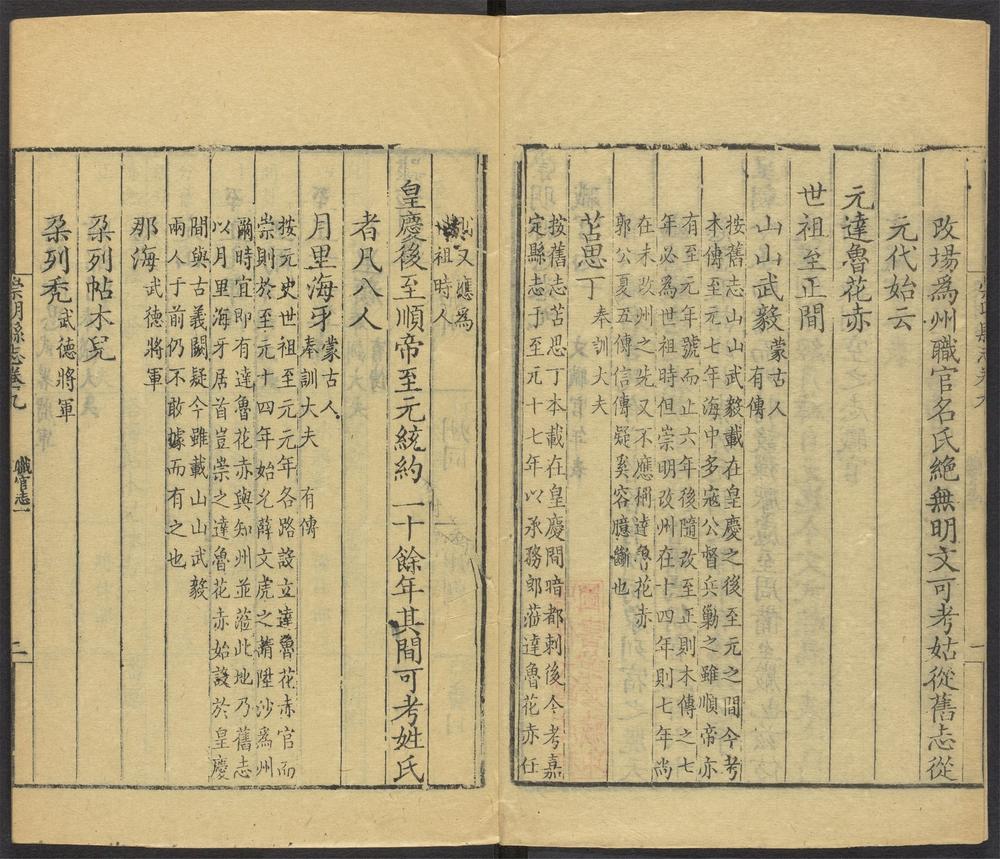 改場為州職官名氏絶無明文可考姑從舊志從
元代始云
元達魯花赤
世祖至正間
山山武毅 蒙古人 有傳
按舊志山山武毅載在皇慶之後至元之間今考
本傳至元七年海中多寇公督兵勦之雖順帝亦
有至元年號而止六年後隨改至正則本傳之七
年必為世祖時但崇明改州在十四年則七年尚
在未改州之先又不應稱達魯花赤
郭公夏五傳信傳疑奚容臆斷也
苫思丁 奉訓大夫
按舊志苫思丁本載在皇慶間暗都剌後今考嘉
定縣志于至元十七年以承務郎蒞達魯花赤任
又應為
祖時人
皇慶後至順帝至元統約二十餘年其間可考姓氏
者凡八人
月里海牙 蒙古人 奉訓大夫 有傳
按元史世祖至元元年各路設立達魯花赤官而
崇則於至元十四年始允薛文虎之請陞沙為州
爾時宜即有達魯花赤與知州並蒞此地乃舊志
以月里海牙居首豈崇之達魯花赤始設於皇慶
間與古義闕疑今雖載山山武毅
兩人于前仍不敢據而有之也
那海 武德將軍
朶列帖木兒
朶列禿 武德將軍
崇明縣志卷九 職官志一 二